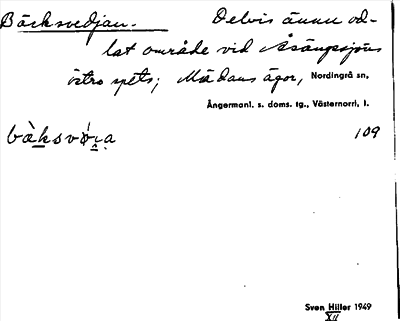 Bäcksvedjan. Delvis ännu od-
lat område vid Åsängssjöns
östra spets; Mädans ägor, Nordingrå sn,
Ångermanl. s. doms. tg., Västernorrl. l.
109
Sven Hiller 1949
XII